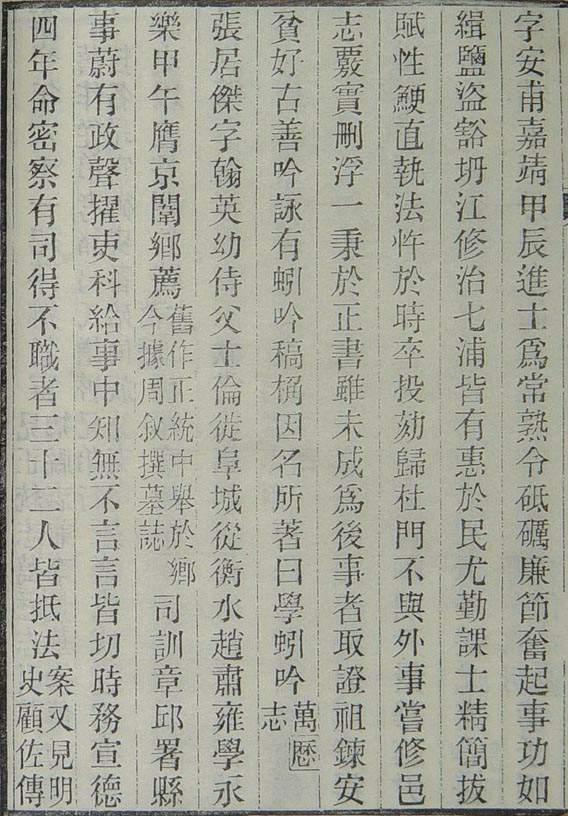 字安甫嘉靖甲辰進士爲常熟令砥礪廉節奮起事功如
緝鹽盜豁坍江修治七浦皆有惠於民尤勤課士精簡拔
賦性鯁直執法忤於時卒投劾歸杜門不與外事嘗修邑
志覈實刪浮一秉於正書雖未成爲後事者取證祖鍊安
貧好古善吟詠有蚓吟稿桷因名所著曰學蚓吟萬厯志
張居傑字翰英幼侍父士倫徙阜城從衡水趙肅雍學永
樂甲午膺京闈鄉薦舊作正統中舉於鄉今據周敘撰墓誌司訓章邱署縣
事蔚有政聲擢吏科給事中知無不言言皆切時務宣德
四年命密察有司得不職者三十二人皆抵法案又見明史顧佐傳